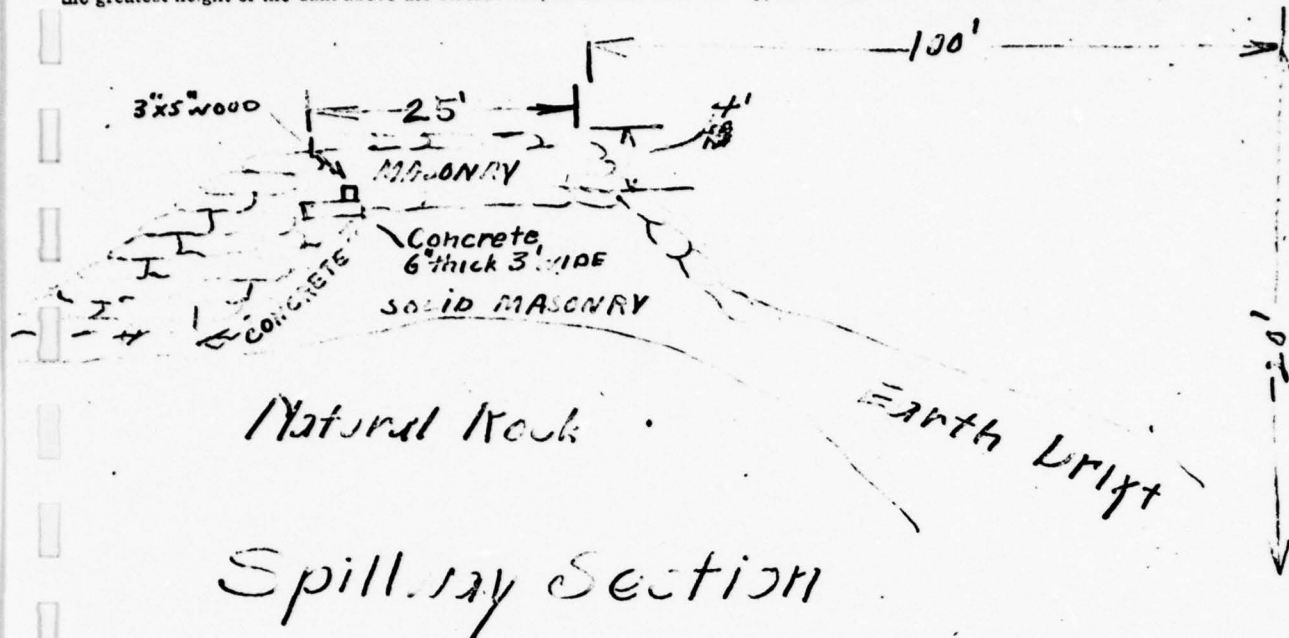 the greatest height of the dam above the
100'
3"x5" WOOD
25'
4'
MASONRY
Concrete
6" thick 3' WIDE
CONCRETE
SOLID MASONRY
20'
Natural Rock
Earth Drift
Spillway Section